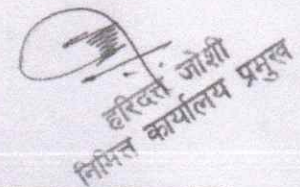 हरिदत्त जोशी
निमित्त कार्यालय प्रमुख